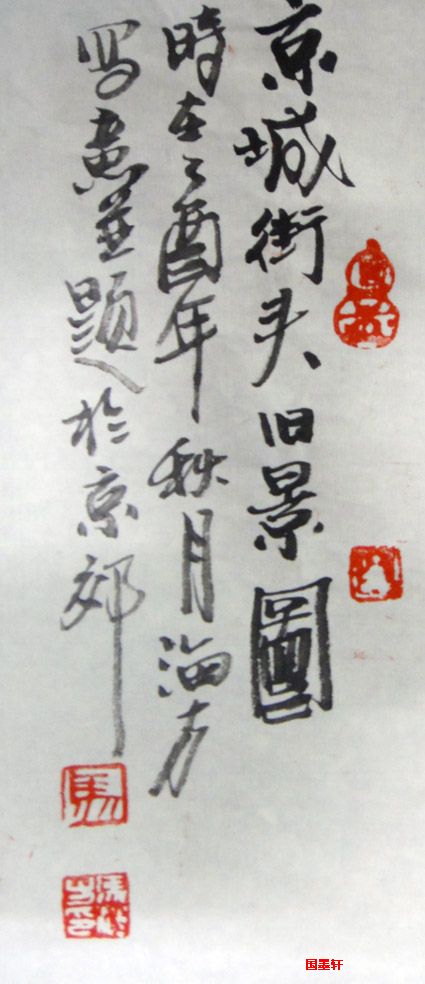 京城街头旧景圖
時在乙酉年秋月海方
写意并题於京郊
馬
国墨轩